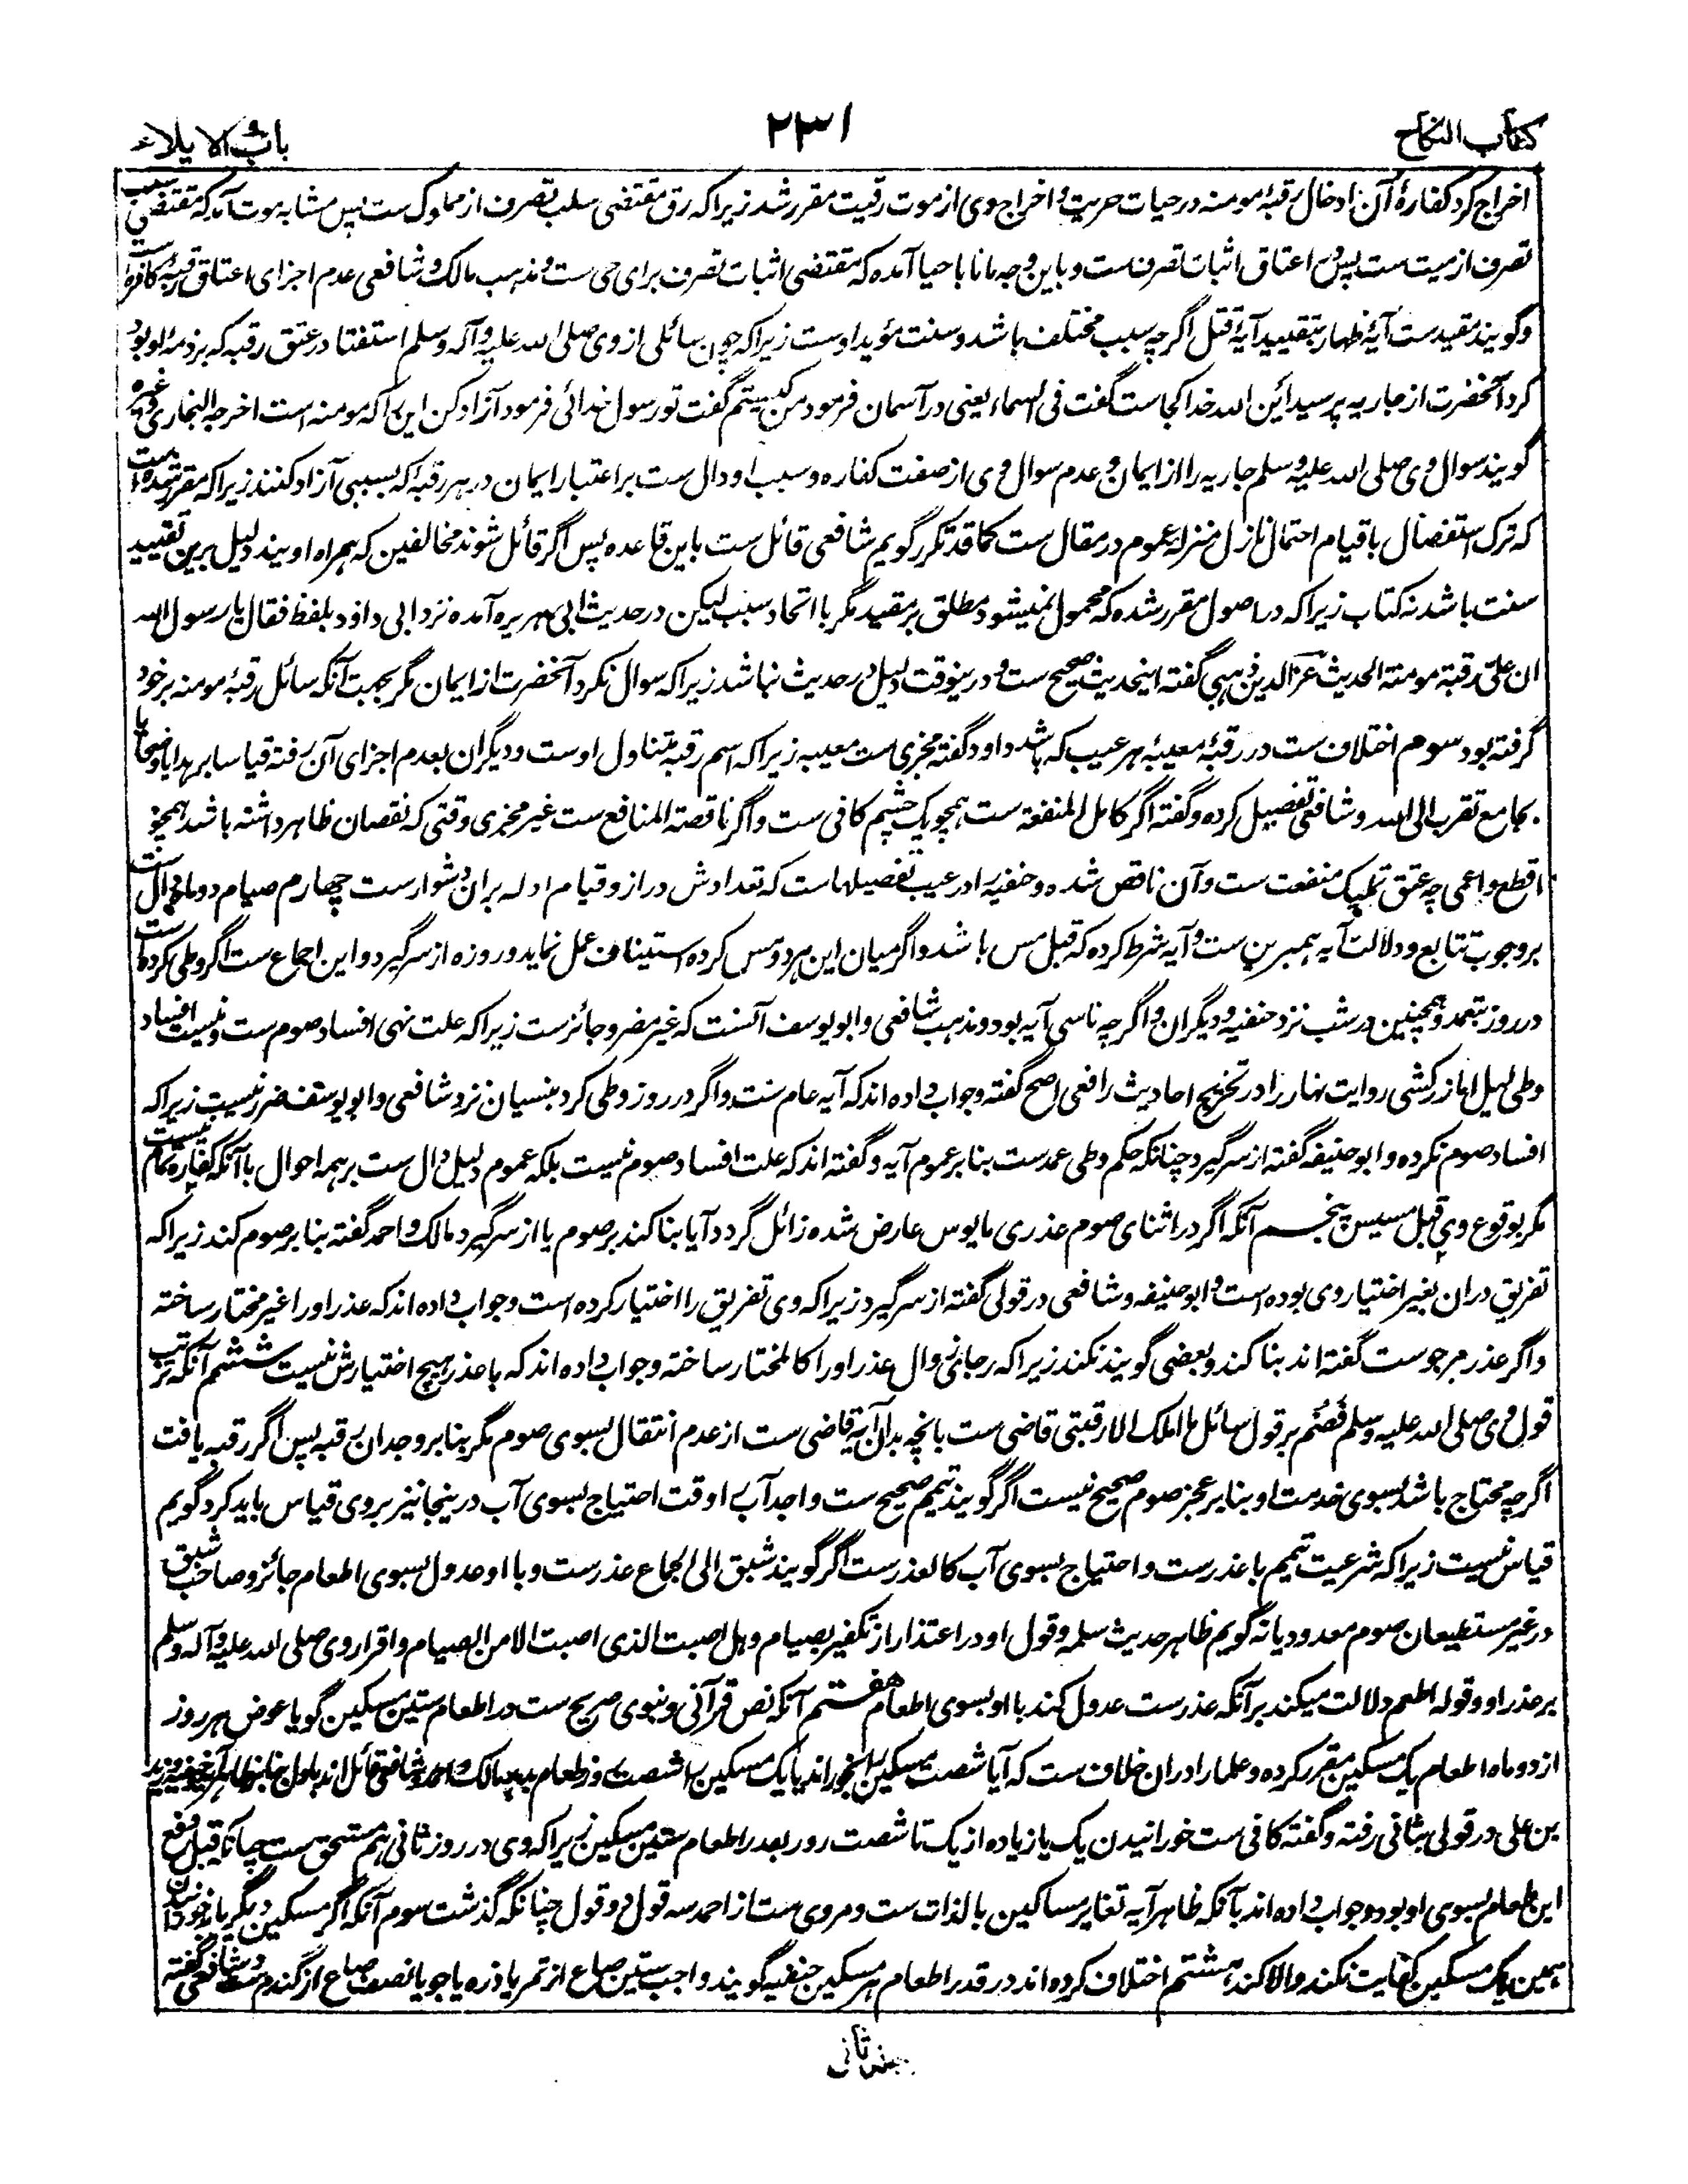 کتاب النکاح
۲۳۱
باب الایلاء
اخراج کرد کفارۀ آن ادخال رقبۀ مومنه در حیات حریت و اخراج وی از موت رقیت مقرر شد زیراکه رق مقتضی سلب تصرف از مملوک ست پس مشابه موت آمد که مقتضی سلب
تصرف از میت ست پس در اعتاق اثبات تصرف ست و باین وجه مانا باحیا آمده که مقتضی اثبات تصرف برای حی ست و مذهب مالک و شافعی عدم اجزای اعتاق رقبۀ کافره ست
و گویند مقید ست آیۀ ظهار بتقیید آیۀ قتل اگرچه سبب مختلف باشد و سنت مؤید اوست زیراکه چون سائلی از وی صلی الله علیه و آله وسلم استفتا در عتق رقبه که بر ذمۀ او بود
کرد آنحضرت از جاریه پرسید این الله خدا کجاست گفت فی السماء یعنی در آسمان فرمود من کیستم گفت تو رسول خدائی فرمود آزاد کن این را که مومنه است اخرجه البخاری وغیره
گویند سوال وی صلی الله علیه وسلم جاریه را از ایمان و عدم سوال وی از صفت کفاره و سبب او دال ست بر اعتبار ایمان در هر رقبه که بسببی آزاد کنند زیراکه مقرر شده است
که ترک استفصال با قیام احتمال نازل منزلۀ عموم در مقال ست کما قد تکرر گویم شافعی قائل ست باین قاعده پس اگر قائل شوند مخالفین که همراه اویند دلیل برین تقیید
سنت باشد نه کتاب زیراکه در اصول مقرر شده که محمول نمیشود مطلق بر مقید مگر با اتحاد سبب لیکن در حدیث ابی هریره آمده نزد ابی داؤد بلفظ فقال یا رسول الله
ان علیّ رقبة مومنة الحدیث عز الدین ذهبی گفته اینحدیث صحیح ست و درینوقت دلیل در حدیث نباشد زیراکه سوال نکرد آنحضرت از ایمان مگر بجهت آنکه سائل رقبۀ مومنه بر خود
گرفته بود سوم اختلاف ست در رقبۀ معیبه بهر عیب که باشد داود گفته مجزی ست معیبه زیراکه اسم رقبه متناول اوست و دیگران بعدم اجزای آن رفته قیاسا بر هدایا و ضحایا
بجامع تقرب الی الله و شافعی تفصیل کرده و گفته اگر کامل المنفعه ست همچو یک چشم کافی ست و اگر ناقصة المنافع ست غیر مجزی وقتی که نقصان ظاهر داشته باشد همچو
اقطع و اعمی چه عتق تملیک منفعت ست و آن ناقص شده و حنفیه را در عیب تفصیلهاست که تعدادش دراز و قیام ادله بران دشوار ست چهارم صیام دو ماه دال ست
بر وجوب تتابع و دلالت آیه همبرین ست و آیه شرط کرده که قبل مس باشد و اگر میان این هر دو مس کرده استیناف عمل نماید و روزه از سر گیرد و این اجماع ست اگر وطی کرده ست
در روز بتعمد و همچنین در شب نزد حنفیه و دیگران و اگرچه ناسی آیه بود و مذهب شافعی و ابو یوسف آنست که غیر مضر و جائز ست زیراکه علت نهی افساد صوم ست و نیست افساد
وطی لیل اما زرکشی روایت نهار را در تخریج احادیث رافعی اصح گفته و جواب داده اند که آیه عام ست و اگر در روز وطی کرد بنسیان نزد شافعی و ابو یوسف ضرر نیست زیراکه
افساد صوم نکرده و ابو حنیفه گفته از سر گیرد چنانکه حکم وطی عمدست بنابر عموم آیه و گفته اند که علت افساد صوم نیست بلکه عموم دلیل دال ست بر همه احوال با آنکه کفاره تمام نیست
مگر بوقوع وی قبل مسیس پنجم آنکه اگر در اثنای صوم عذری مایوس عارض شده زائل گردد آیا بنا کند بر صوم یا از سر گیرد مالک و احمد گفته بنا بر صوم کند زیراکه
تفریق دران بغیر اختیار وی بوده است و ابو حنیفه و شافعی در قولی گفته از سر گیرد زیراکه وی تفریق را اختیار کرده است و جواب داده اند که عذر او را غیر مختار ساخته
و اگر عذر مرجوست گفته اند بنا کند و بعضی گویند نکند زیراکه رجای زوال عذر او را کالمختار ساخته و جواب داده اند که با عذر هیچ اختیارش نیست ششم آنکه ترتب
قول وی صلی الله علیه وسلم فصُم بر قول سائل ما املک الا رقبتی قاضی ست بانچه بدان آیه قاضی ست از عدم انتقال بسوی صوم مگر بنابر وجدان رقبه پس اگر رقبه یافت
اگرچه محتاج باشد بسوی خدمت او بنابر عجز صوم صحیح نیست اگر گویند تیمم صحیح ست واجد آب را وقت احتیاج بسوی آب درینجا نیز بر وی قیاس باید کرد گویم
قیاس نیست زیراکه شرعیت تیمم با عذرست و احتیاج بسوی آب کالعذرست اگر گویند شبق الی الجماع عذرست و با او عدول بسوی اطعام جائز و صاحب شبق
در غیر مستطیعان صوم معدود یا نه گویم ظاهر حدیث سلمه و قول او در اعتذار از تکفیر بصیام و هل اصبت الذی اصبت الا من الصیام و اقرار وی صلی الله علیه و آله وسلم
بر عذر او و قوله اطعم دلالت میکند بر آنکه عذرست عدول کند با او بسوی اطعام هفتم آنکه نص قرآنی و نبوی صریح ست در اطعام ستین مسکین گویا عوض هر روز
از دو ماه اطعام یک مسکین مقرر کرده و علما را دران خلاف ست که آیا شصت مسکین را بخوراند یا یک مسکین را شصت روز طعام بدهد مالک و احمد و شافعی قائل اند باول
بن علی در قولی بثانی رفته و گفته کافی ست خورانیدن یک یا زیاده از یک تا شصت روز بعد اطعام ستین مسکین زیراکه وی در روز ثانی هم مستحق ست چنانکه قبل دفع
این طعام بسوی او بود و جواب داده اند بآنکه ظاهر آیه تغایر مساکین بالذات ست و مروی ست از احمد سه قول دو قول چنانکه گذشت سوم آنکه اگر مسکین دیگر یابد خورانیدن
همین یک مسکین کفایت نکند والا کند هشتم اختلاف کرده اند در قدر اطعام هر مسکین حنفیه گویند واجب ستین صاع از تمر یا ذره یا جو یا نصف صاع از گندم ست و شافعی گفته